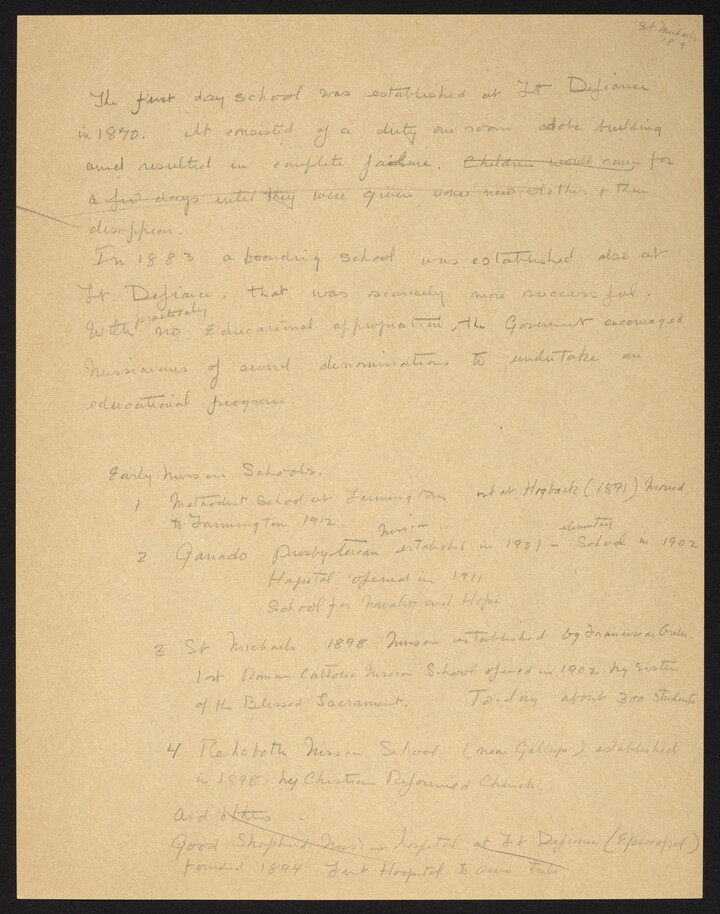 St Michaels
189
The first day school was established at Ft Defiance
in 1870. It consisted of a dirty one room adobe building
and resulted in complete failure. Children would come for
a few days until they were given some new clothes & then
disappear.
In 1883 a boarding school was established also at
Ft. Defiance, that was scarcely more successful.
practically
With no Educational appropriation, the Goverment encouraged
Missionaries of several denominations to undertake an
educational program.
Early Mission Schools.
1 Methodist School at Farmington at Hogback (1891) Moved
to Farmington 1912.
Mission elementary
2 Ganado Presbyterian established in 1901 - School in 1902
Hospital opened in 1911
School for Navaho and Hopi
3 St Michaels 1898 Mission established by Franciscan Order.
1st Roman Catholic Mission School opened in 1902 by Sisters
of the Blessed Sacrament. To-day about 300 students
4 Rehoboth Mission School (near Gallup) established
in 1898 by Christian Reformed Church
And others.
Good Shepherd Mission hospital at Ft Defiance (Episcopal)
founded 1894 1st Hospital to serve tribe.